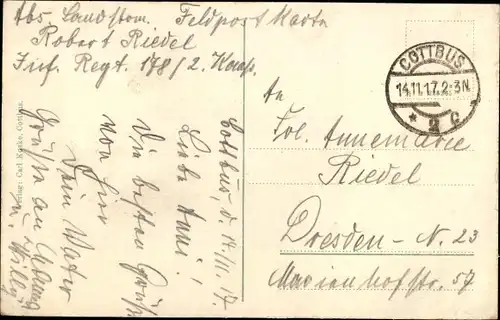 Abs. Landstm. Feldpost Karte
Robert Riedel
Inf. Regt. 178/2. Komp.
COTTBUS
14.11.17.2-3N.
* g c
An
Frl. Annemarie
Riedel
Dresden-N. 23
Marienhofstr. 57
Cottbus, d. 14/11. 17
Liebe Anni!
Die besten Grüße
von hier
Dein Vater
Grüße an Mama
u. Willy
Verlag: Carl Kottke, Cottbus.